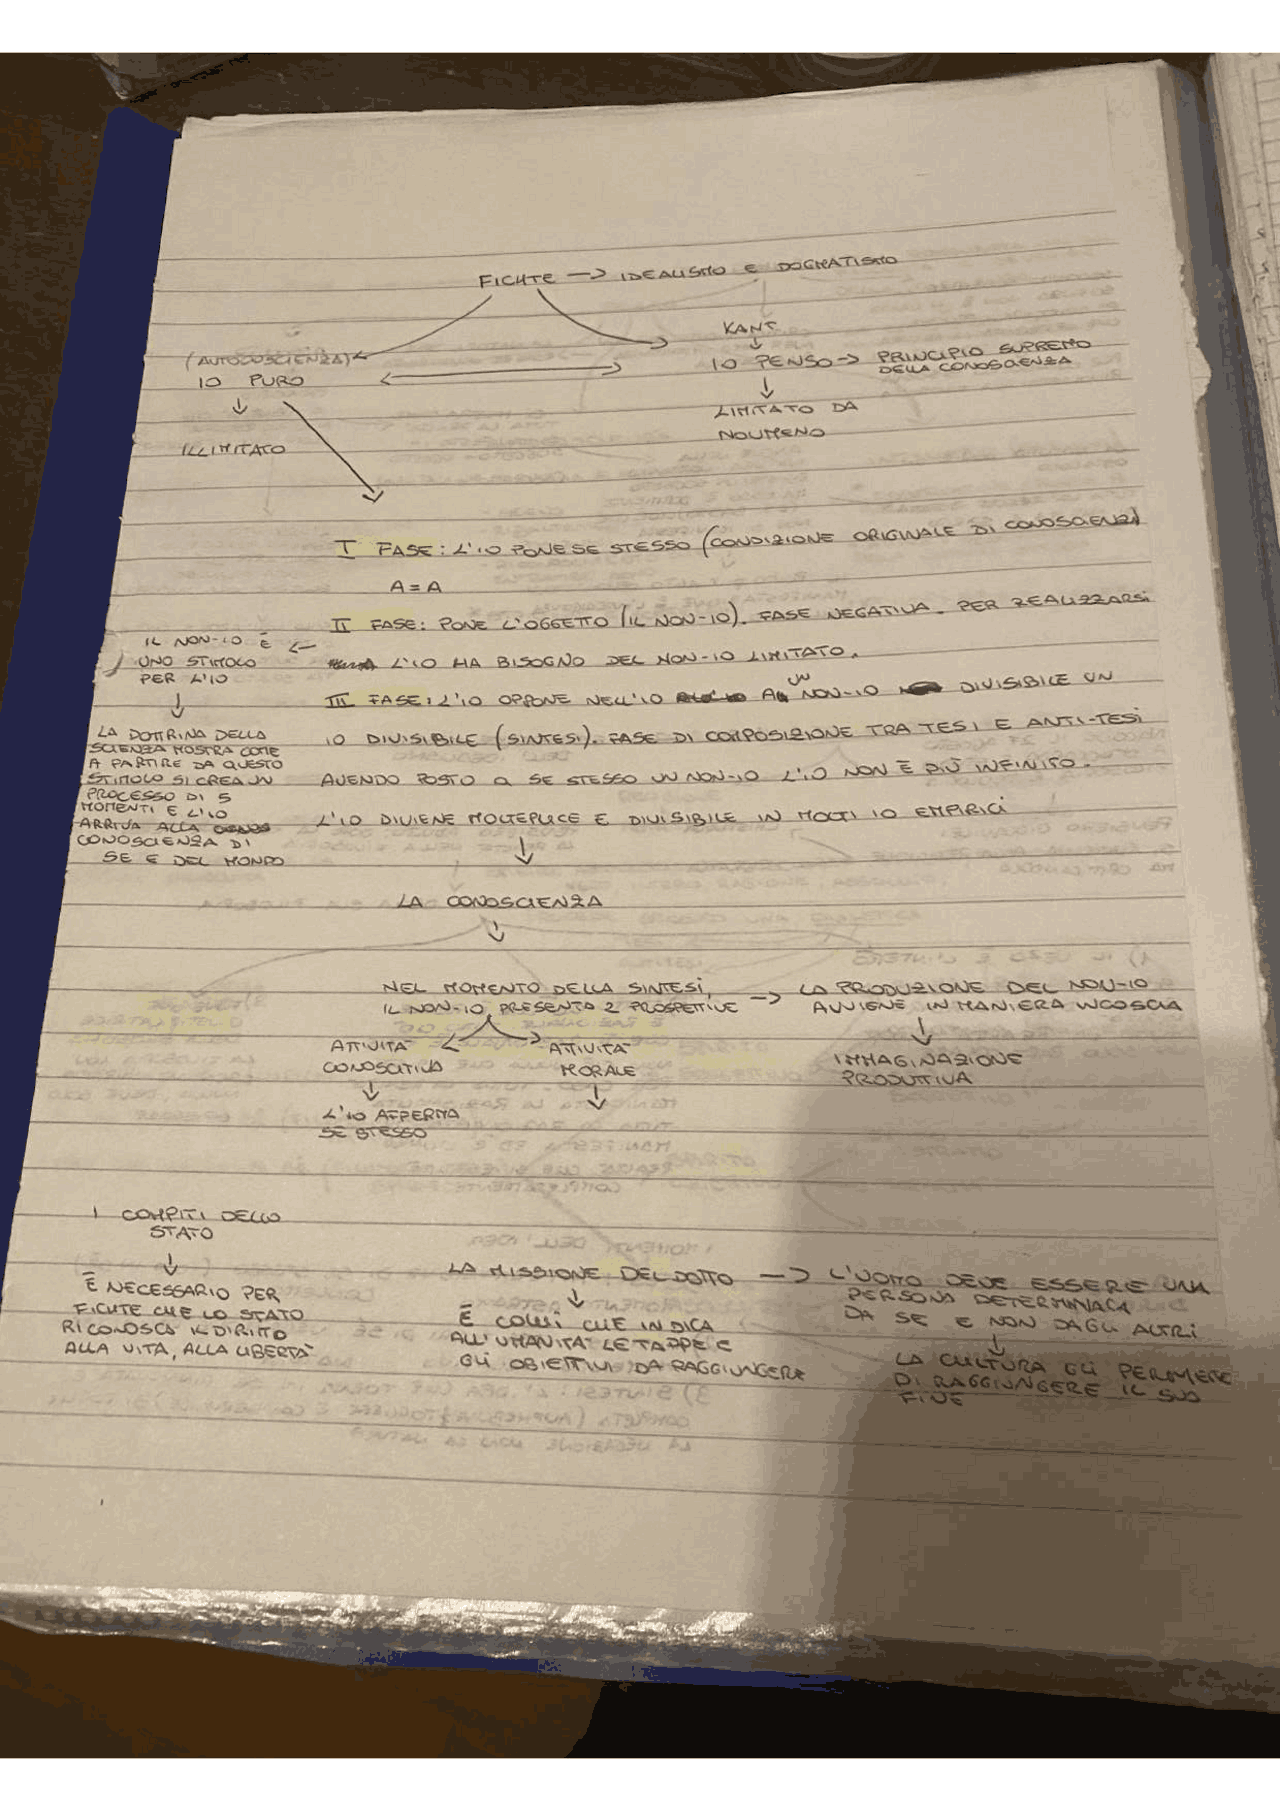 FICHTE -> IDEALISMO E DOGMATISMO
KANT
(AUTOCOSCIENZA)
IO PURO
IO PENSO -> PRINCIPIO SUPREMO
DELLA CONOSCIENZA
ILLIMITATO
LIMITATO DA
NOUMENO
I FASE: L'IO PONE SE STESSO (CONDIZIONE ORIGINALE DI CONOSCIENZA)
A = A
II FASE: PONE L'OGGETTO (IL NON-IO). FASE NEGATIVA. PER REALIZZARSI
L'IO HA BISOGNO DEL NON-IO LIMITATO.
IL NON-IO È
UNO STIMOLO
PER L'IO
LA DOTTRINA DELLA
SCIENZA MOSTRA COME
A PARTIRE DA QUESTO
STIMOLO SI CREA UN
PROCESSO DI 5
MOMENTI E L'IO
ARRIVA ALLA
CONOSCIENZA DI
SE E DEL MONDO
III FASE: L'IO OPPONE NELL'IO A UN NON-IO DIVISIBILE UN
IO DIVISIBILE (SINTESI). FASE DI COMPOSIZIONE TRA TESI E ANTI-TESI
AVENDO POSTO A SE STESSO UN NON-IO L'IO NON È PIÙ INFINITO.
L'IO DIVIENE MOLTEPLICE E DIVISIBILE IN MOLTI IO EMPIRICI
LA CONOSCIENZA
NEL MOMENTO DELLA SINTESI,
IL NON-IO PRESENTA 2 PROSPETTIVE
-> LA PRODUZIONE DEL NON-IO
AVVIENE IN MANIERA INCOSCIA
ATTIVITA'
CONOSCITIVA
ATTIVITA'
MORALE
IMMAGINAZIONE
PRODUTTIVA
L'IO AFFERMA
SE STESSO
I COMPITI DELLO
STATO
È NECESSARIO PER
FICHTE CHE LO STATO
RICONOSCA IL DIRITTO
ALLA VITA, ALLA LIBERTA'
LA MISSIONE DEL DOTTO -> L'UOMO DEVE ESSERE UNA
PERSONA DETERMINATA
DA SE E NON DAGLI ALTRI
È COLUI CHE INDICA
ALL'UMANITA' LE TAPPE E
GLI OBIETTIVI DA RAGGIUNGERE
LA CULTURA GLI PERMETTE
DI RAGGIUNGERE IL SUO
FINE